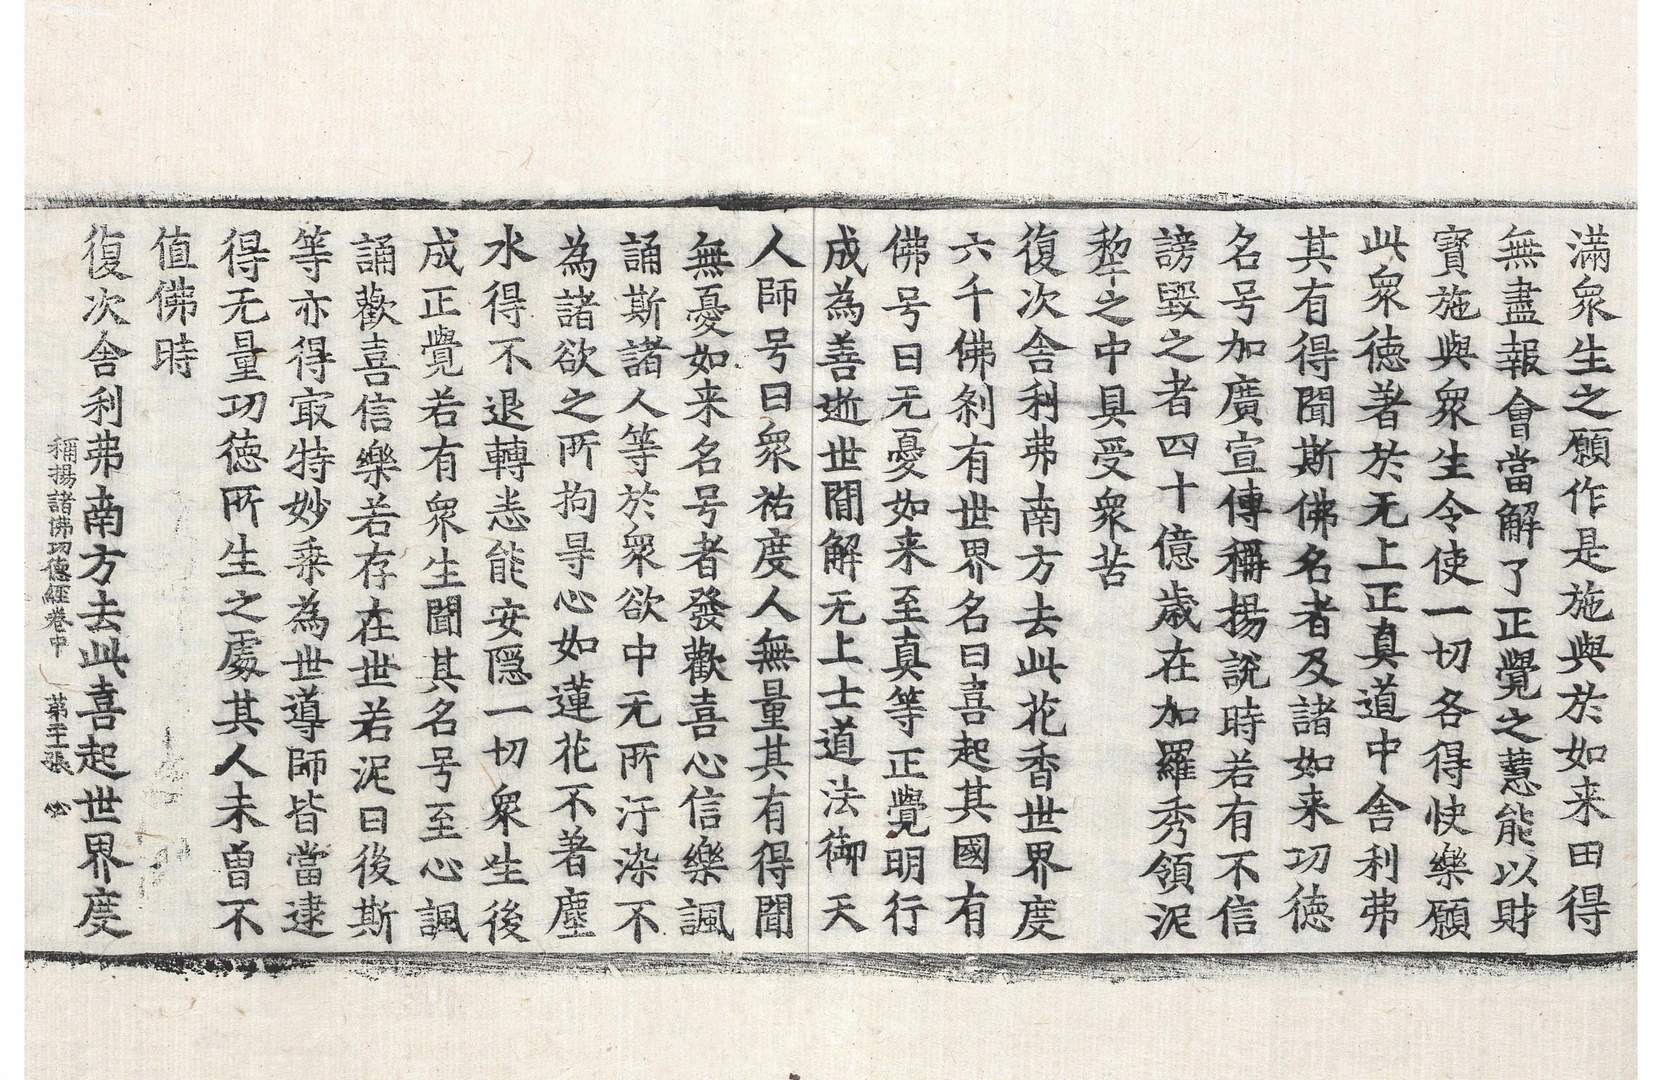 滿衆生之願作是施與於如来田得
無盡報會當解了正覺之慧能以財
寶施與衆生令使一切各得快樂願
此衆徳著於无上正真道中舎利弗
其有得聞斯佛名者及諸如来功徳
名号加廣宣傳稱揚說時若有不信
謗毀之者四十億歲在加羅秀領泥
犂之中具受衆苦
復次舎利弗南方去此花香世界度
六千佛剎有世界名曰喜起其國有
佛号曰无憂如来至真等正覺明行
成為善逝世間解无上士道法御天
人師号曰衆祐度人無量其有得聞
無憂如来名号者發歡喜心信樂諷
誦斯諸人等於衆欲中无所汙染不
為諸欲之所拘㝵心如蓮花不著塵
水得不退轉恙能安隠一切衆生後
成正覺若有衆生聞其名号至心諷
誦歡喜信樂若存在世若泥曰後斯
等亦得㝡特妙乘為世導師皆當逮
得无量功徳所生之處其人未曾不
值佛時
復次舎利弗南方去此喜起世界度
稱揚諸佛功德經卷中　第二十張